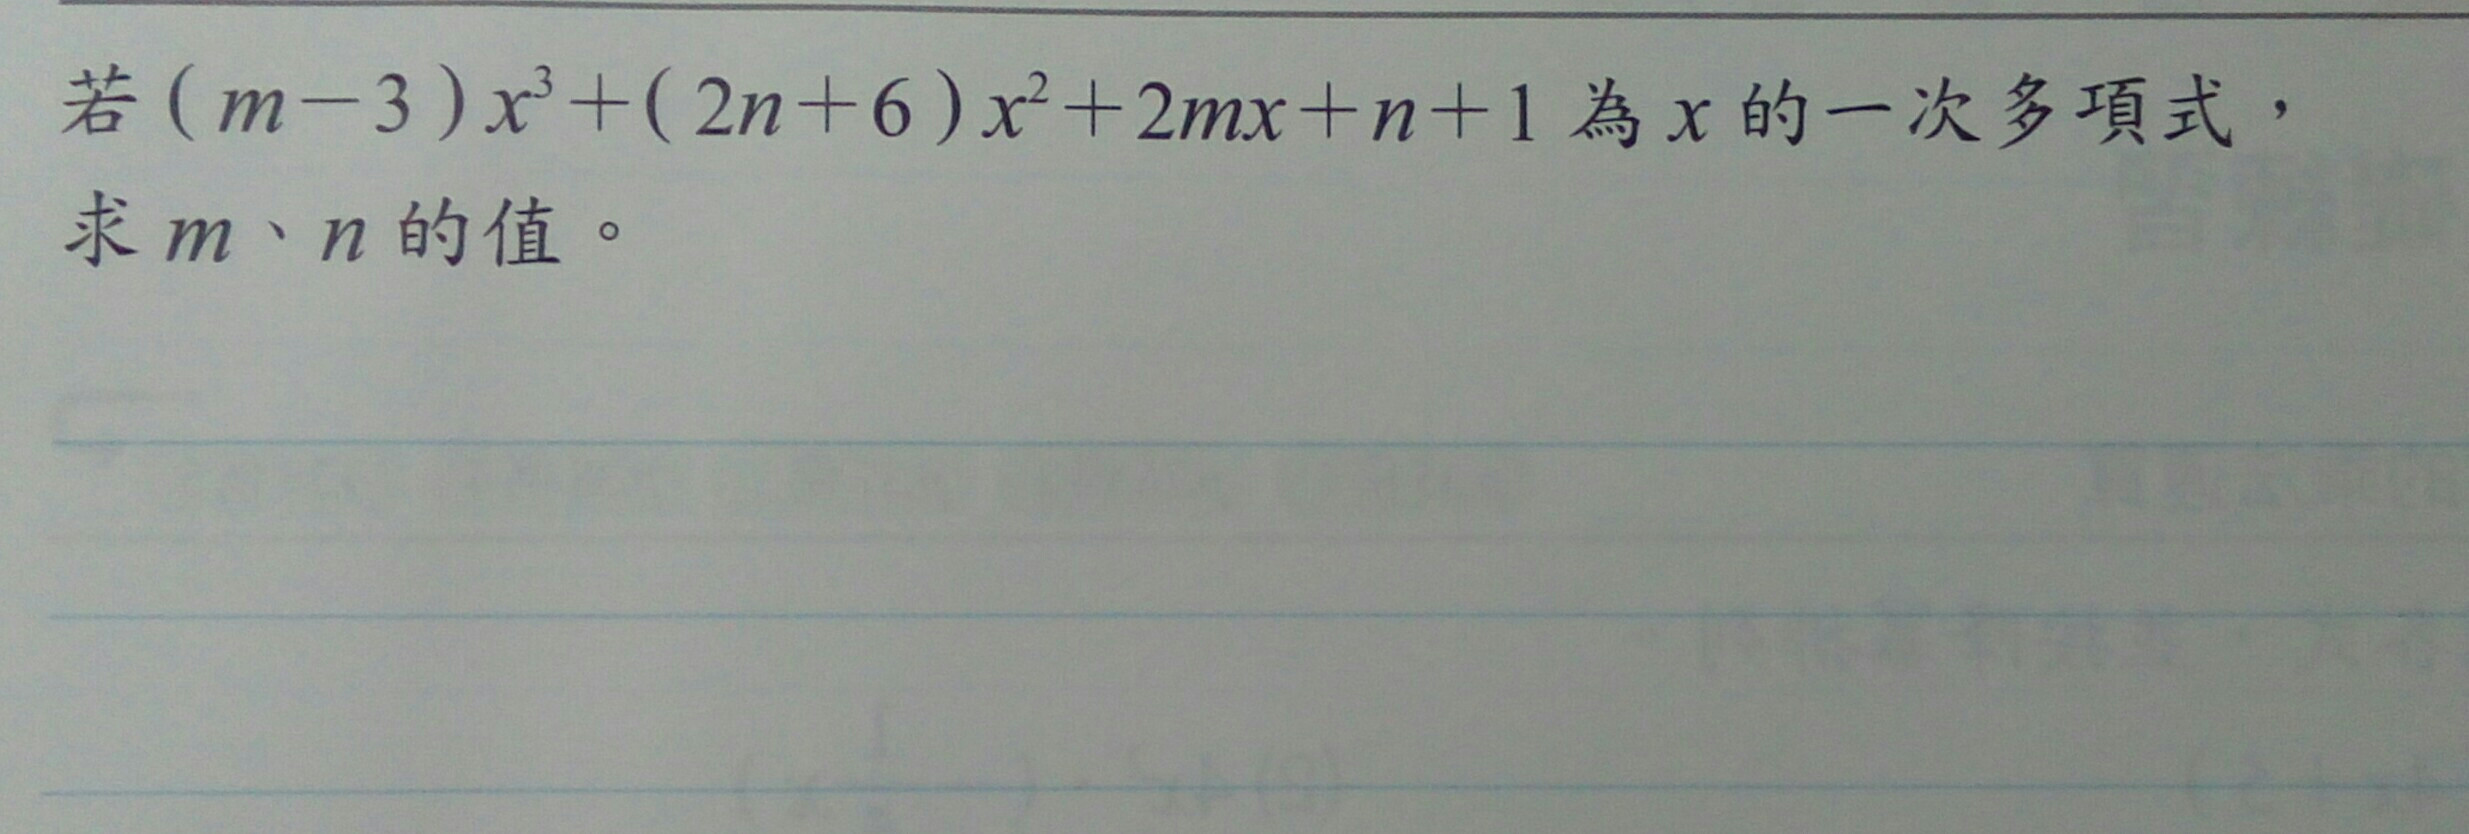 若(m-3)x³+(2n+6)x²+2mx+n+1 為 x 的一次多項式，
求 m、n 的值。